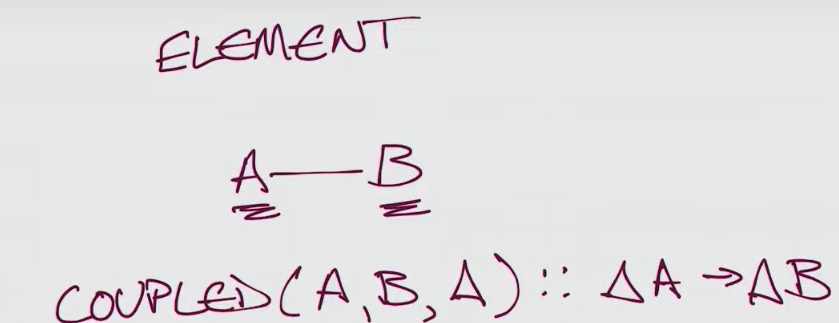 ELEMENT
A — B
COUPLED(A, B, Δ) :: ΔA → ΔB